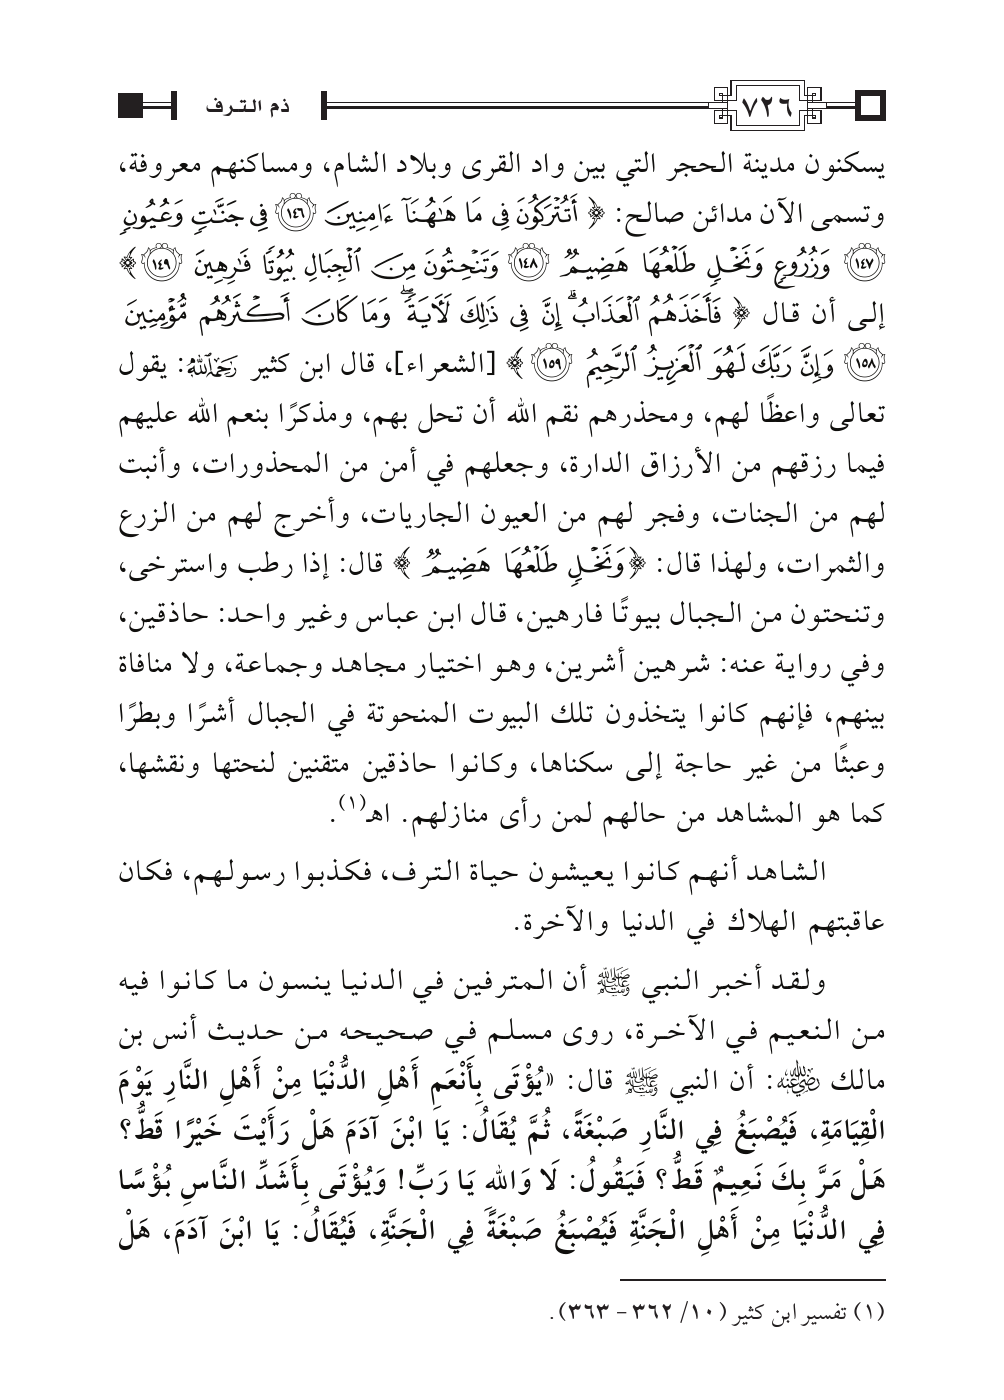 ٧٢٦
ذم الترف
يسكنون مدينة الحجر التي بين واد القرى وبلاد الشام، ومساكنهم معروفة،
وتسمى الآن مدائن صالح: ﴿ أَتُتْرَكُونَ فِي مَا هَٰهُنَآ ءَامِنِينَ ۝١٤٦ فِي جَنَّٰتٖ وَعُيُونٖ
۝١٤٧ وَزُرُوعٖ وَنَخۡلٖ طَلۡعُهَا هَضِيمٞ ۝١٤٨ وَتَنۡحِتُونَ مِنَ ٱلۡجِبَالِ بُيُوتٗا فَٰرِهِينَ ۝١٤٩ ﴾
إلى أن قال ﴿ فَأَخَذَهُمُ ٱلۡعَذَابُۚ إِنَّ فِي ذَٰلِكَ لَأٓيَةٗۖ وَمَا كَانَ أَكۡثَرُهُم مُّؤۡمِنِينَ
۝١٥٨ وَإِنَّ رَبَّكَ لَهُوَ ٱلۡعَزِيزُ ٱلرَّحِيمُ ۝١٥٩ ﴾ [الشعراء]، قال ابن كثير رحمه الله: يقول
تعالى واعظًا لهم، ومحذرهم نقم الله أن تحل بهم، ومذكرًا بنعم الله عليهم
فيما رزقهم من الأرزاق الدارة، وجعلهم في أمن من المحذورات، وأنبت
لهم من الجنات، وفجر لهم من العيون الجاريات، وأخرج لهم من الزرع
والثمرات، ولهذا قال: ﴿وَنَخۡلٖ طَلۡعُهَا هَضِيمٞ ﴾ قال: إذا رطب واسترخى،
وتنحتون من الجبال بيوتًا فارهين، قال ابن عباس وغير واحد: حاذقين،
وفي رواية عنه: شرهين أشرين، وهو اختيار مجاهد وجماعة، ولا منافاة
بينهم، فإنهم كانوا يتخذون تلك البيوت المنحوتة في الجبال أشرًا وبطرًا
وعبثًا من غير حاجة إلى سكناها، وكانوا حاذقين متقنين لنحتها ونقشها،
كما هو المشاهد من حالهم لمن رأى منازلهم. اهـ(١).
الشاهد أنهم كانوا يعيشون حياة الترف، فكذبوا رسولهم، فكان
عاقبتهم الهلاك في الدنيا والآخرة.
ولقد أخبر النبي ﷺ أن المترفين في الدنيا ينسون ما كانوا فيه
من النعيم في الآخرة، روى مسلم في صحيحه من حديث أنس بن
مالك رضي الله عنه: أن النبي ﷺ قال: «يُؤْتَى بِأَنْعَمِ أَهْلِ الدُّنْيَا مِنْ أَهْلِ النَّارِ يَوْمَ
الْقِيَامَةِ، فَيُصْبَغُ فِي النَّارِ صَبْغَةً، ثُمَّ يُقَالُ: يَا ابْنَ آدَمَ هَلْ رَأَيْتَ خَيْرًا قَطُّ؟
هَلْ مَرَّ بِكَ نَعِيمٌ قَطُّ؟ فَيَقُولُ: لَا وَاللهِ يَا رَبِّ! وَيُؤْتَى بِأَشَدِّ النَّاسِ بُؤْسًا
فِي الدُّنْيَا مِنْ أَهْلِ الْجَنَّةِ فَيُصْبَغُ صَبْغَةً فِي الْجَنَّةِ، فَيُقَالُ: يَا ابْنَ آدَمَ، هَلْ
(١) تفسير ابن كثير (١٠/ ٣٦٢ - ٣٦٣).